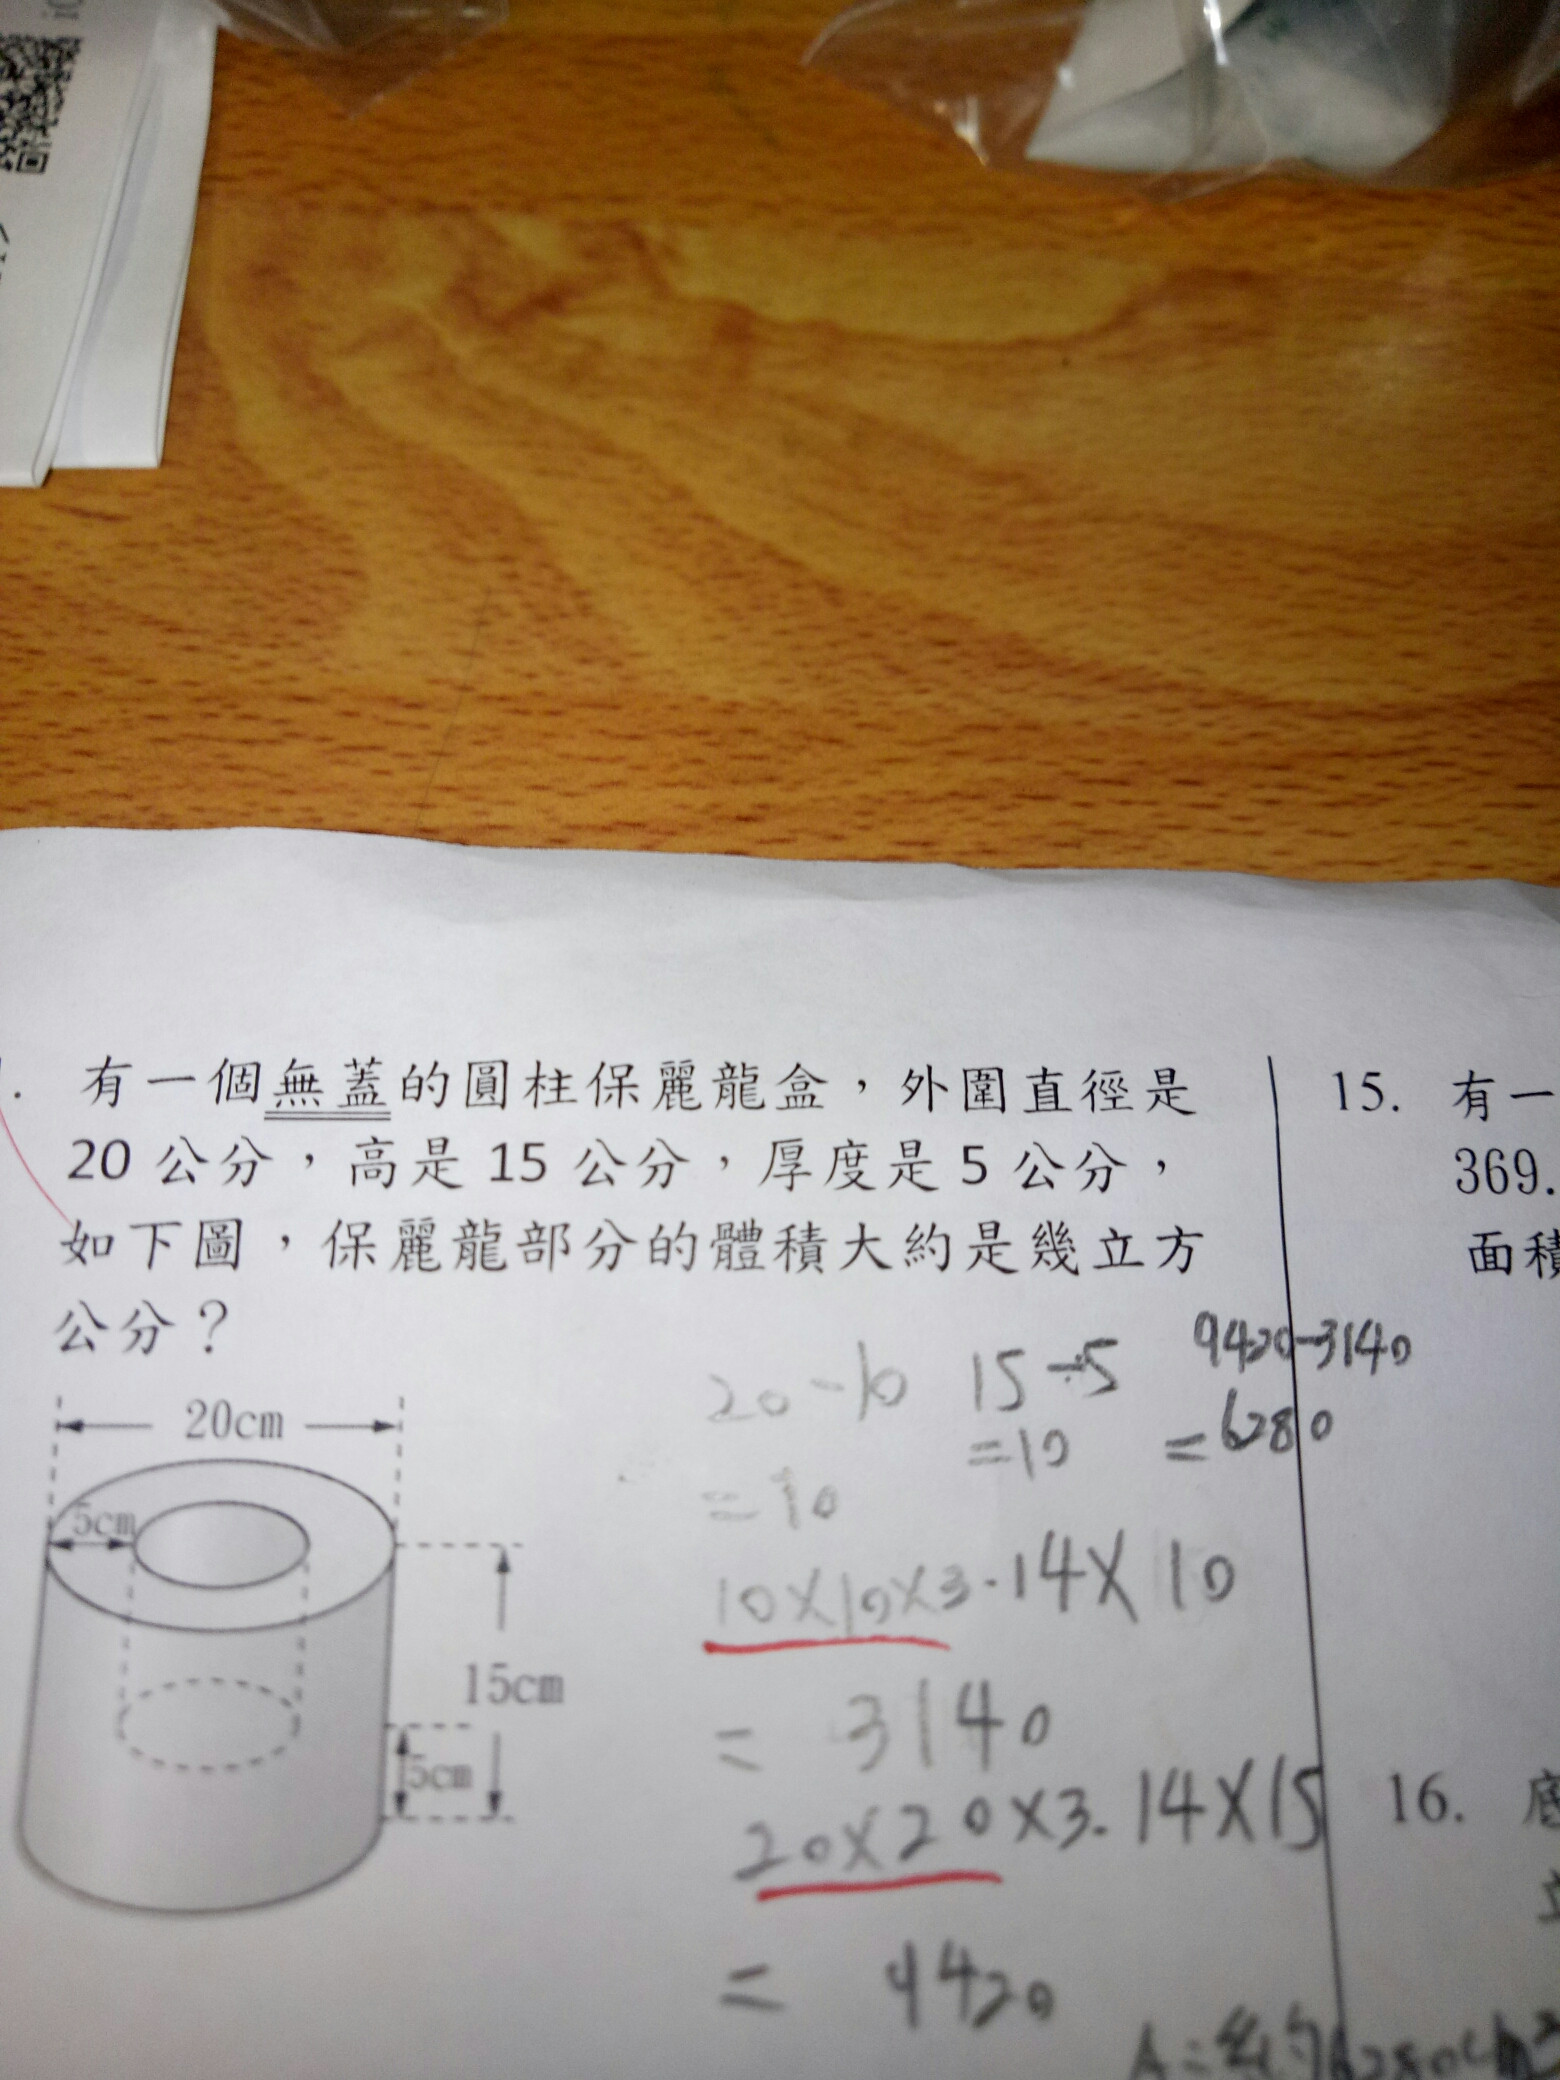 有一個無蓋的圓柱保麗龍盒，外圍直徑是
20 公分，高是 15 公分，厚度是 5 公分，
如下圖，保麗龍部分的體積大約是幾立方
公分？
20cm
5cm
15cm
5cm
20-10
=10
15÷5
=10
9420-3140
=6280
10×10×3.14×10
= 3140
20×20×3.14×15
= 9420
A=約6280cm³
15. 有一
369.
面積
16. 底